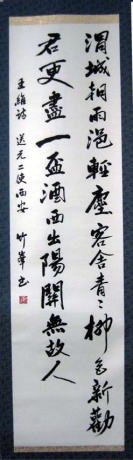 渭城朝雨浥輕塵客舍青々柳色新勸
君更盡一盃酒西出陽關無故人
王維詩 送元二使西安 竹峯书